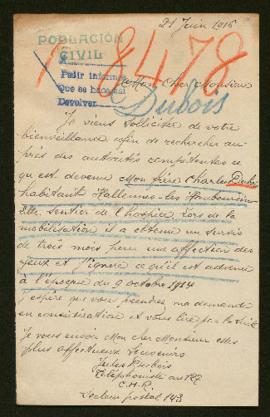 21 Juin 1916
POBLACIÓN
CIVIL
18478
Pedir informes
Que se hace saber
Devolver
Mon Cher Monsieur
Dubois
Je viens solliciter de votre
bienveillance afin de rechercher au-
près des autorités compétentes ce
qu'est devenu Mon frère Charles Dubois
habitant Hallennes-lez-Haubourdin
sentier de l'hospice, lors de la
mobilisation il a obtenu un sursis
de trois mois pour une affection des
yeux et j'ignore ce qu'il est advenu
à l'époque du 9 octobre 1914
J'espère que vous prendrez ma demande
en considération et vous tire par la suite
Je vous envoie Mon cher Monsieur mes
plus affectueux souvenirs
Jules Dubois
Téléphoniste au
C.H.R.
Secteur postal 143